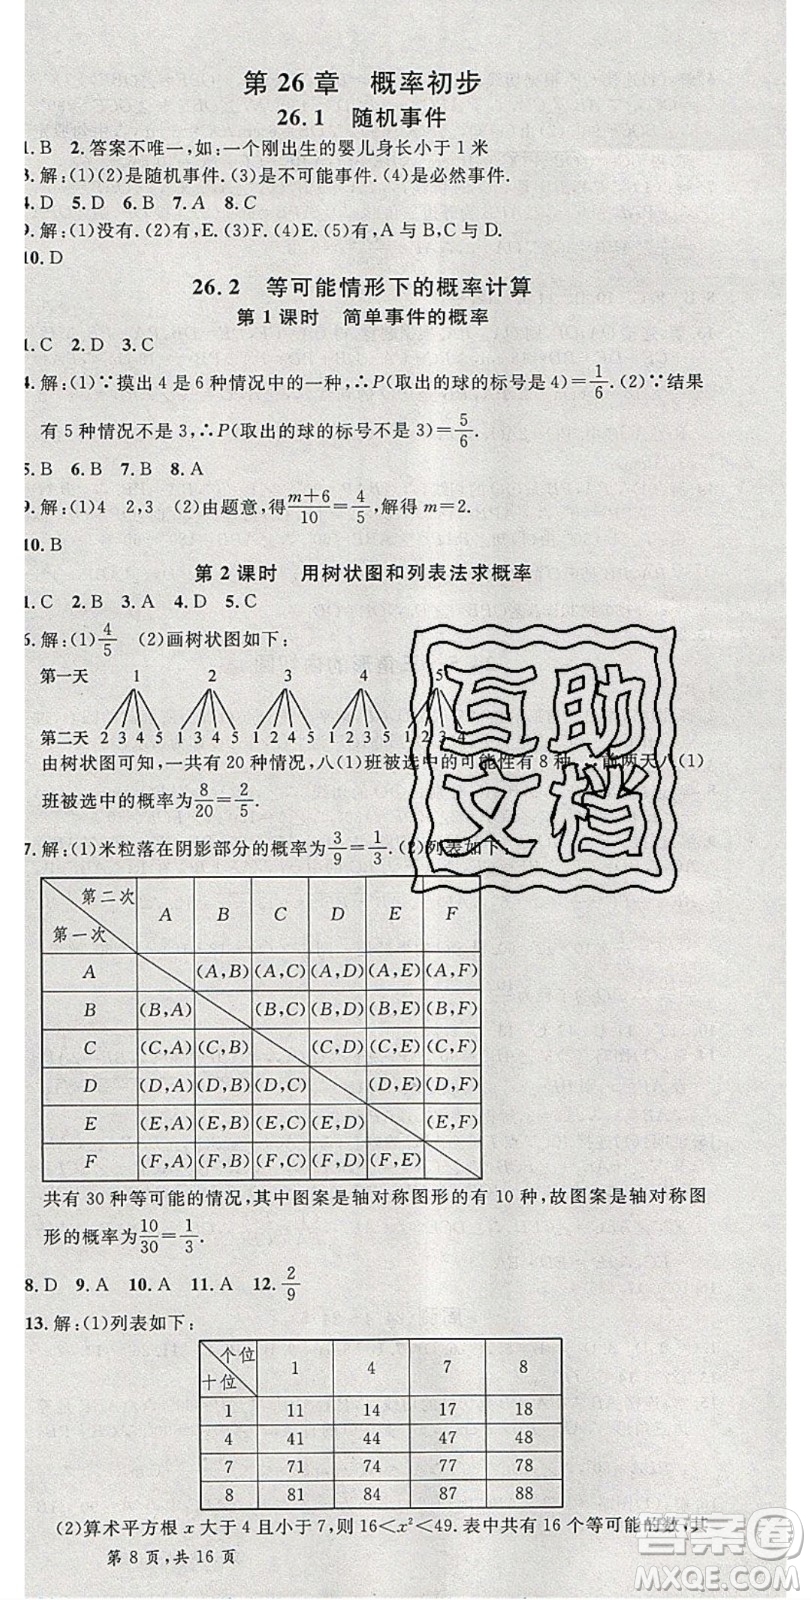 第 26 章 概率初步
26.1 随机事件
1. B 2. 答案不唯一,如:一个刚出生的婴儿身长小于 1 米
3. 解:(1)(2)是随机事件.(3)是不可能事件.(4)是必然事件.
4. D 5. D 6. B 7. A 8. C
9. 解:(1)没有.(2)有,E.(3)F.(4)有,A 与 B,C 与 D.
10. D
26.2 等可能情形下的概率计算
第 1 课时 简单事件的概率
1. C 2. D 3. C
4. 解:(1)∵摸出 4 是 6 种情况中的一种,∴P(取出的球的标号是 4)=1/6.(2)∵结果
有 5 种情况不是 3,∴P(取出的球的标号不是 3)=5/6.
5. B 6. B 7. B 8. A
9. 解:(1)4 2,3 (2)由题意,得(m+6)/10=4/5,解得 m=2.
10. B
第 2 课时 用树状图和列表法求概率
1. C 2. A 3. A 4. D 5. C
6. 解:(1)4/5 (2)画树状图如下:
第一天 1 2 3 4 5
第二天 2 3 4 5 1 3 4 5 1 2 4 5 1 2 3 5 1 2 3 4
由树状图可知,一共有 20 种情况,八(1)班被选中的可能性有 8 种,前两天八(1)
班被选中的概率为8/20=2/5.
7. 解:(1)米粒落在阴影部分的概率为3/9=1/3.(2)列表如下:
第二次 第一次 A B C D E F
A (A,B) (A,C) (A,D) (A,E) (A,F)
B (B,A) (B,C) (B,D) (B,E) (B,F)
C (C,A) (C,B) (C,D) (C,E) (C,F)
D (D,A) (D,B) (D,C) (D,E) (D,F)
E (E,A) (E,B) (E,C) (E,D) (E,F)
F (F,A) (F,B) (F,C) (F,D) (F,E)
共有 30 种等可能的情况,其中图案是轴对称图形的有 10 种,故图案是轴对称图
形的概率为10/30=1/3.
8. D 9. A 10. A 11. A 12. 2/9
13. 解:(1)列表如下:
个位 十位 1 4 7 8
1 11 14 17 18
4 41 44 47 48
7 71 74 77 78
8 81 84 87 88
(2)算术平方根 x 大于 4 且小于 7,则 16<x²<49. 表中共有 16 个等可能的数,其
第 8 页,共 16 页
互助
文档
作业精灵
MXQE.COM